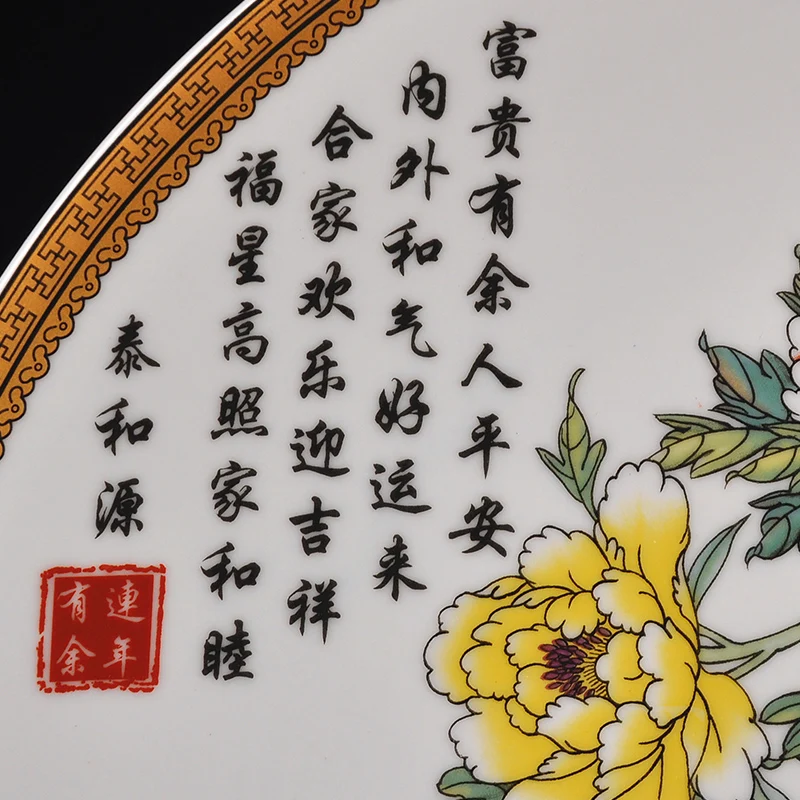 富贵有余人平安
内外和气好运来
合家欢乐迎吉祥
福星高照家和睦
泰和源
連年
有余